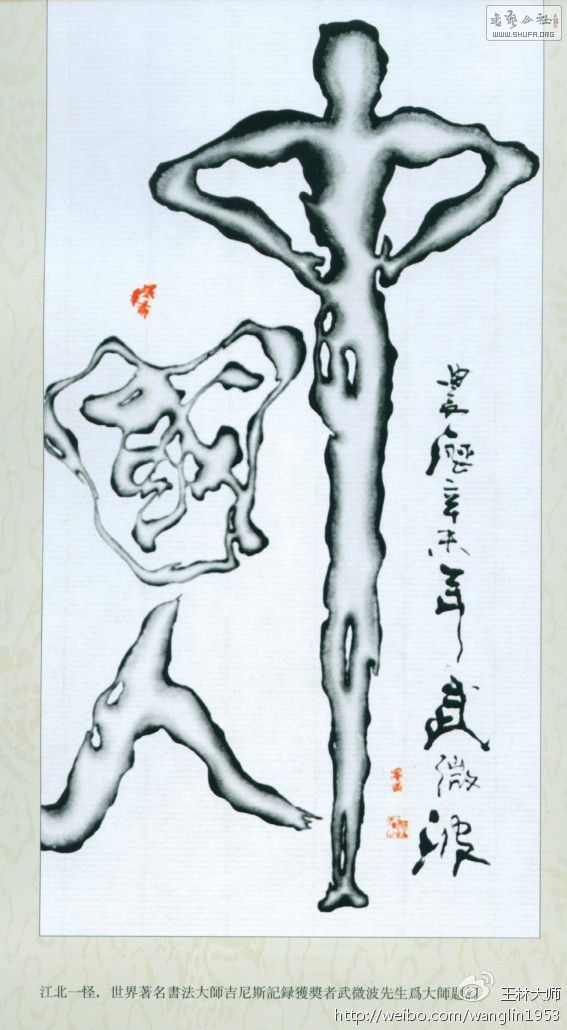 書藝公社
WWW.SHUFA.ORG
中國人
農歷辛未年武微波
江北一怪，世界著名書法大師吉尼斯記録獲奬者武微波先生爲大師題
王林大师
http://weibo.com/wanglin1953